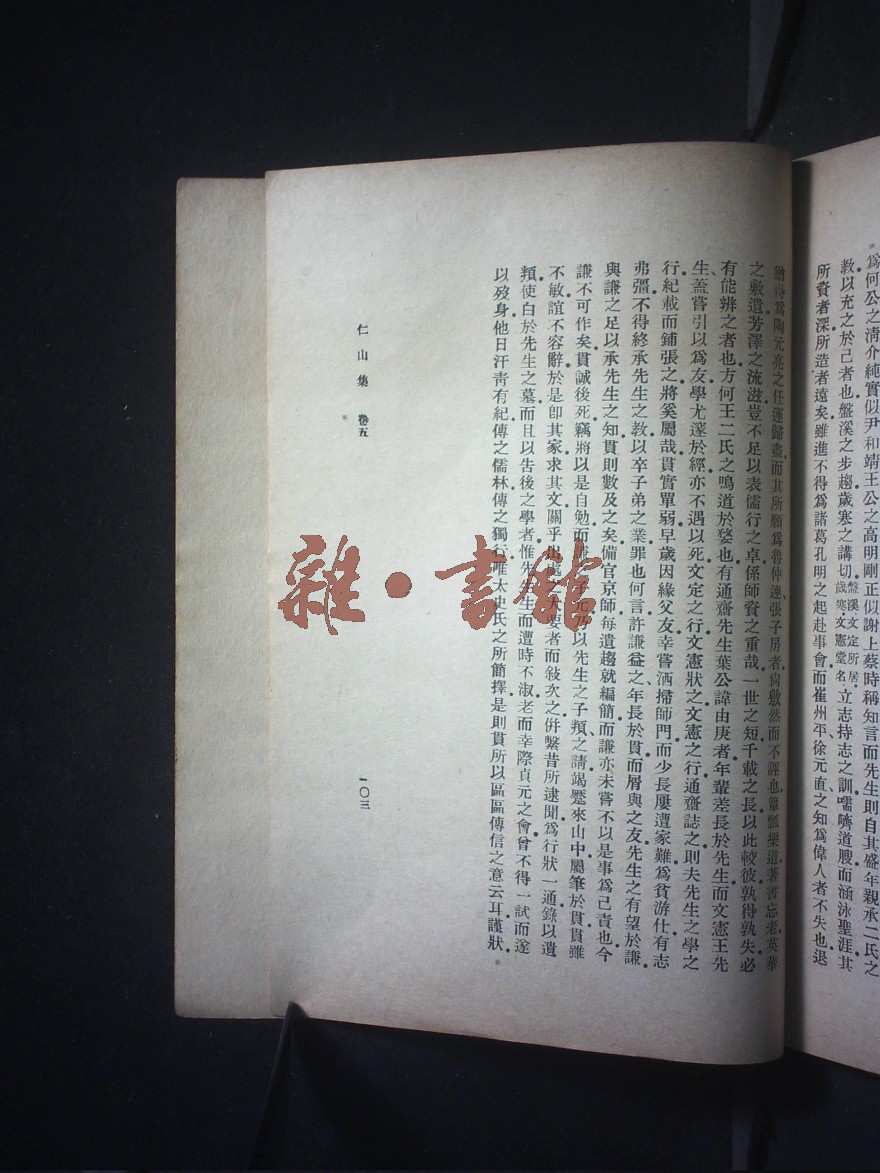 爲何公之淸介純實似尹和靖王公之高明剛正似謝上蔡時稱知言而先生則自其盛年親承二氏之
敎以充之於己者也盤溪之步趨歲寒之講切盤溪文定所居歲寒文憲堂名立志持志之訓嚅嚌道腴而涵泳聖涯其
所資者深所造者遠矣雖進不得爲諸葛孔明之起赴事會而崔州平徐元直之知爲偉人者不失也退
得爲陶元亮之任運歸盡而其所願爲魯仲連張子房者尙欿然而不誣也簞瓢樂道著書忘老英華
之敷遺芳澤之流滋豈不足以表儒行之卓係師資之重哉一世之短千載之長以此較彼孰得孰失必
有能辨之者也方何王二氏之鳴道於婺也有通齋先生葉公諱由庚者年輩差長於先生而文憲王先
生蓋嘗引以爲友學尤邃於經亦不遇以死文定之行文憲狀之文憲之行通齋誌之則夫先生之學之
行紀載而鋪張之將奚屬哉貫實單弱早歲因緣父友幸嘗洒掃師門而少長屢遭家難爲貧游仕有志
弗彊不得終承先生之敎以卒子弟之業罪也何言許謙益之年長於貫而屑與之友先生之有望於謙
與謙之足以承先生之知貫則數及之矣備官京師每遺趨就編簡而謙亦未嘗不以是事爲己責也今
謙不可作矣貫誠後死竊將以是自勉而乃以先生之子頖之請竭蹷來山中屬筆於貫貫雖
不敏誼不容辭於是卽其家求其文關乎出處大要者而敍次之併繫昔所逮聞爲行狀一通錄以遺
頖使白於先生之墓而且以告後之學者惟先生生而遭時不淑老而幸際貞元之會曾不得一試而遂
以歿身他日汗靑有紀傳之儒林傳之獨行唯太史氏之所簡擇是則貫所以區區傳信之意云耳謹狀
仁山集 卷五
一〇三
雜·書館